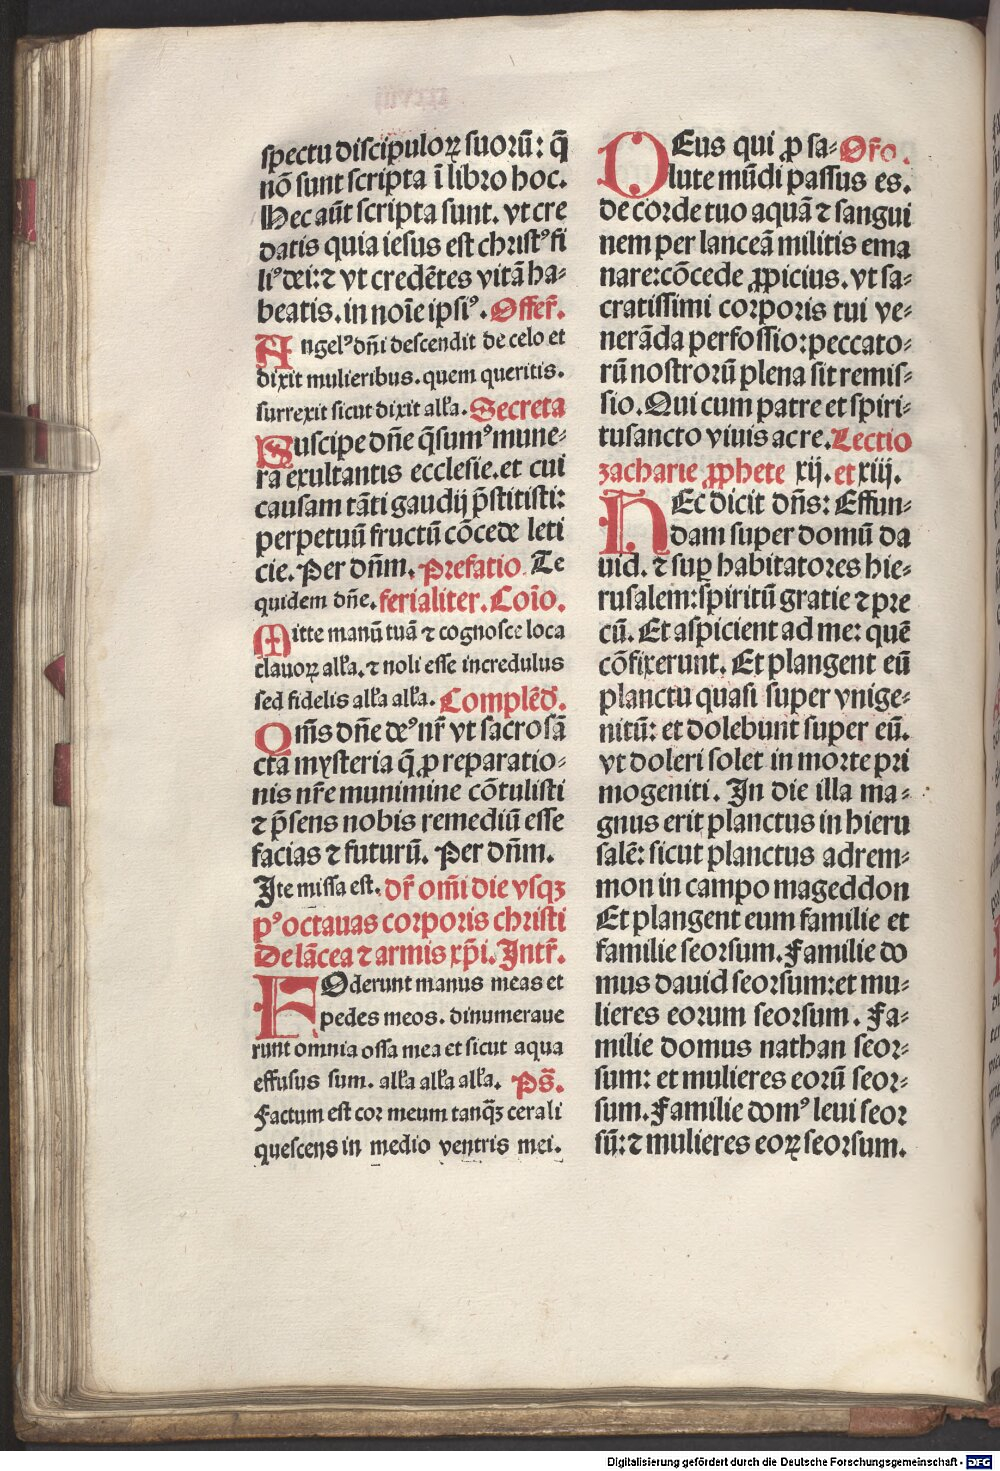 spectu discipuloꝝ suorū: q̄
nō sunt scripta ī libro hoc.
Hec aūt scripta sunt. vt cre
datis quia iesus est christꝰ fi
liꝰ dei: ⁊ vt credētes vitā ha-
beatis. in noīe ipsiꝰ. Offer̄.
Angelꝰ dn̄i descendit de celo et
dixit mulieribus. quem queritis.
surrexit sicut dixit all'a. Secreta
Suscipe dn̄e q̄sumꝰ mune-
ra exultantis ecclesie. et cui
causam tāti gaudij p̄stitisti:
perpetuū fructū cōcede leti
cie. Per dn̄m. Prefatio. Te
quidem dn̄e. ferialiter. Coīo.
Mitte manū tuā ⁊ cognosce loca
clauoꝝ all'a. ⁊ noli esse incredulus
sed fidelis all'a all'a. Complēd̄.
Qm̄s dn̄e deꝰ nr̄ vt sacrosā
cta mysteria q̄ ꝓ reparatio-
nis nr̄e munimine cōtulisti
⁊ p̄sens nobis remediū esse
facias ⁊ futurū. Per dn̄m.
Ite missa est. dr̄ om̄i die vsqꝫ
pꝰ octauas corporis christi
De lācea ⁊ armis xp̄i. Intr̄.
FOderunt manus meas et
pedes meos. dinumeraue
runt omnia ossa mea et sicut aqua
effusus sum. all'a all'a all'a. Ps̄.
Factum est cor meum tanqꝫ cera li
quescens in medio ventris mei.
DEus qui ꝓ sa- Or̄o.
lute mūdi passus es.
de corde tuo aquā ⁊ sangui
nem per lanceā militis ema
nare: cōcede ꝓpicius. vt sa-
cratissimi corporis tui ve-
nerāda perfossio: peccato-
rū nostrorū plena sit remis-
sio. Qui cum patre et spiri-
tusancto viuis ac re. Lectio
zacharie ꝓphete xij. et xiij.
HEc dicit dn̄s: Effun-
dam super domū da
uid. ⁊ suꝑ habitatores hie-
rusalem: spiritū gratie ⁊ pre
cū. Et aspicient ad me: quē
cōfixerunt. Et plangent eū
planctu quasi super vnige-
nitū: et dolebunt super eū.
vt doleri solet in morte pri
mogeniti. In die illa ma-
gnus erit planctus in hieru
salē: sicut planctus adrem-
mon in campo mageddon
Et plangent eum familie et
familie seorsum. Familie do
mus dauid seorsum: et mu-
lieres eorum seorsum. Fa-
milie domus nathan seor-
sum: et mulieres eorū seor-
sum. Familie domꝰ leui seor
sū: ⁊ mulieres eoꝝ seorsum.
Digitalisierung gefördert durch die Deutsche Forschungsgemeinschaft - DFG